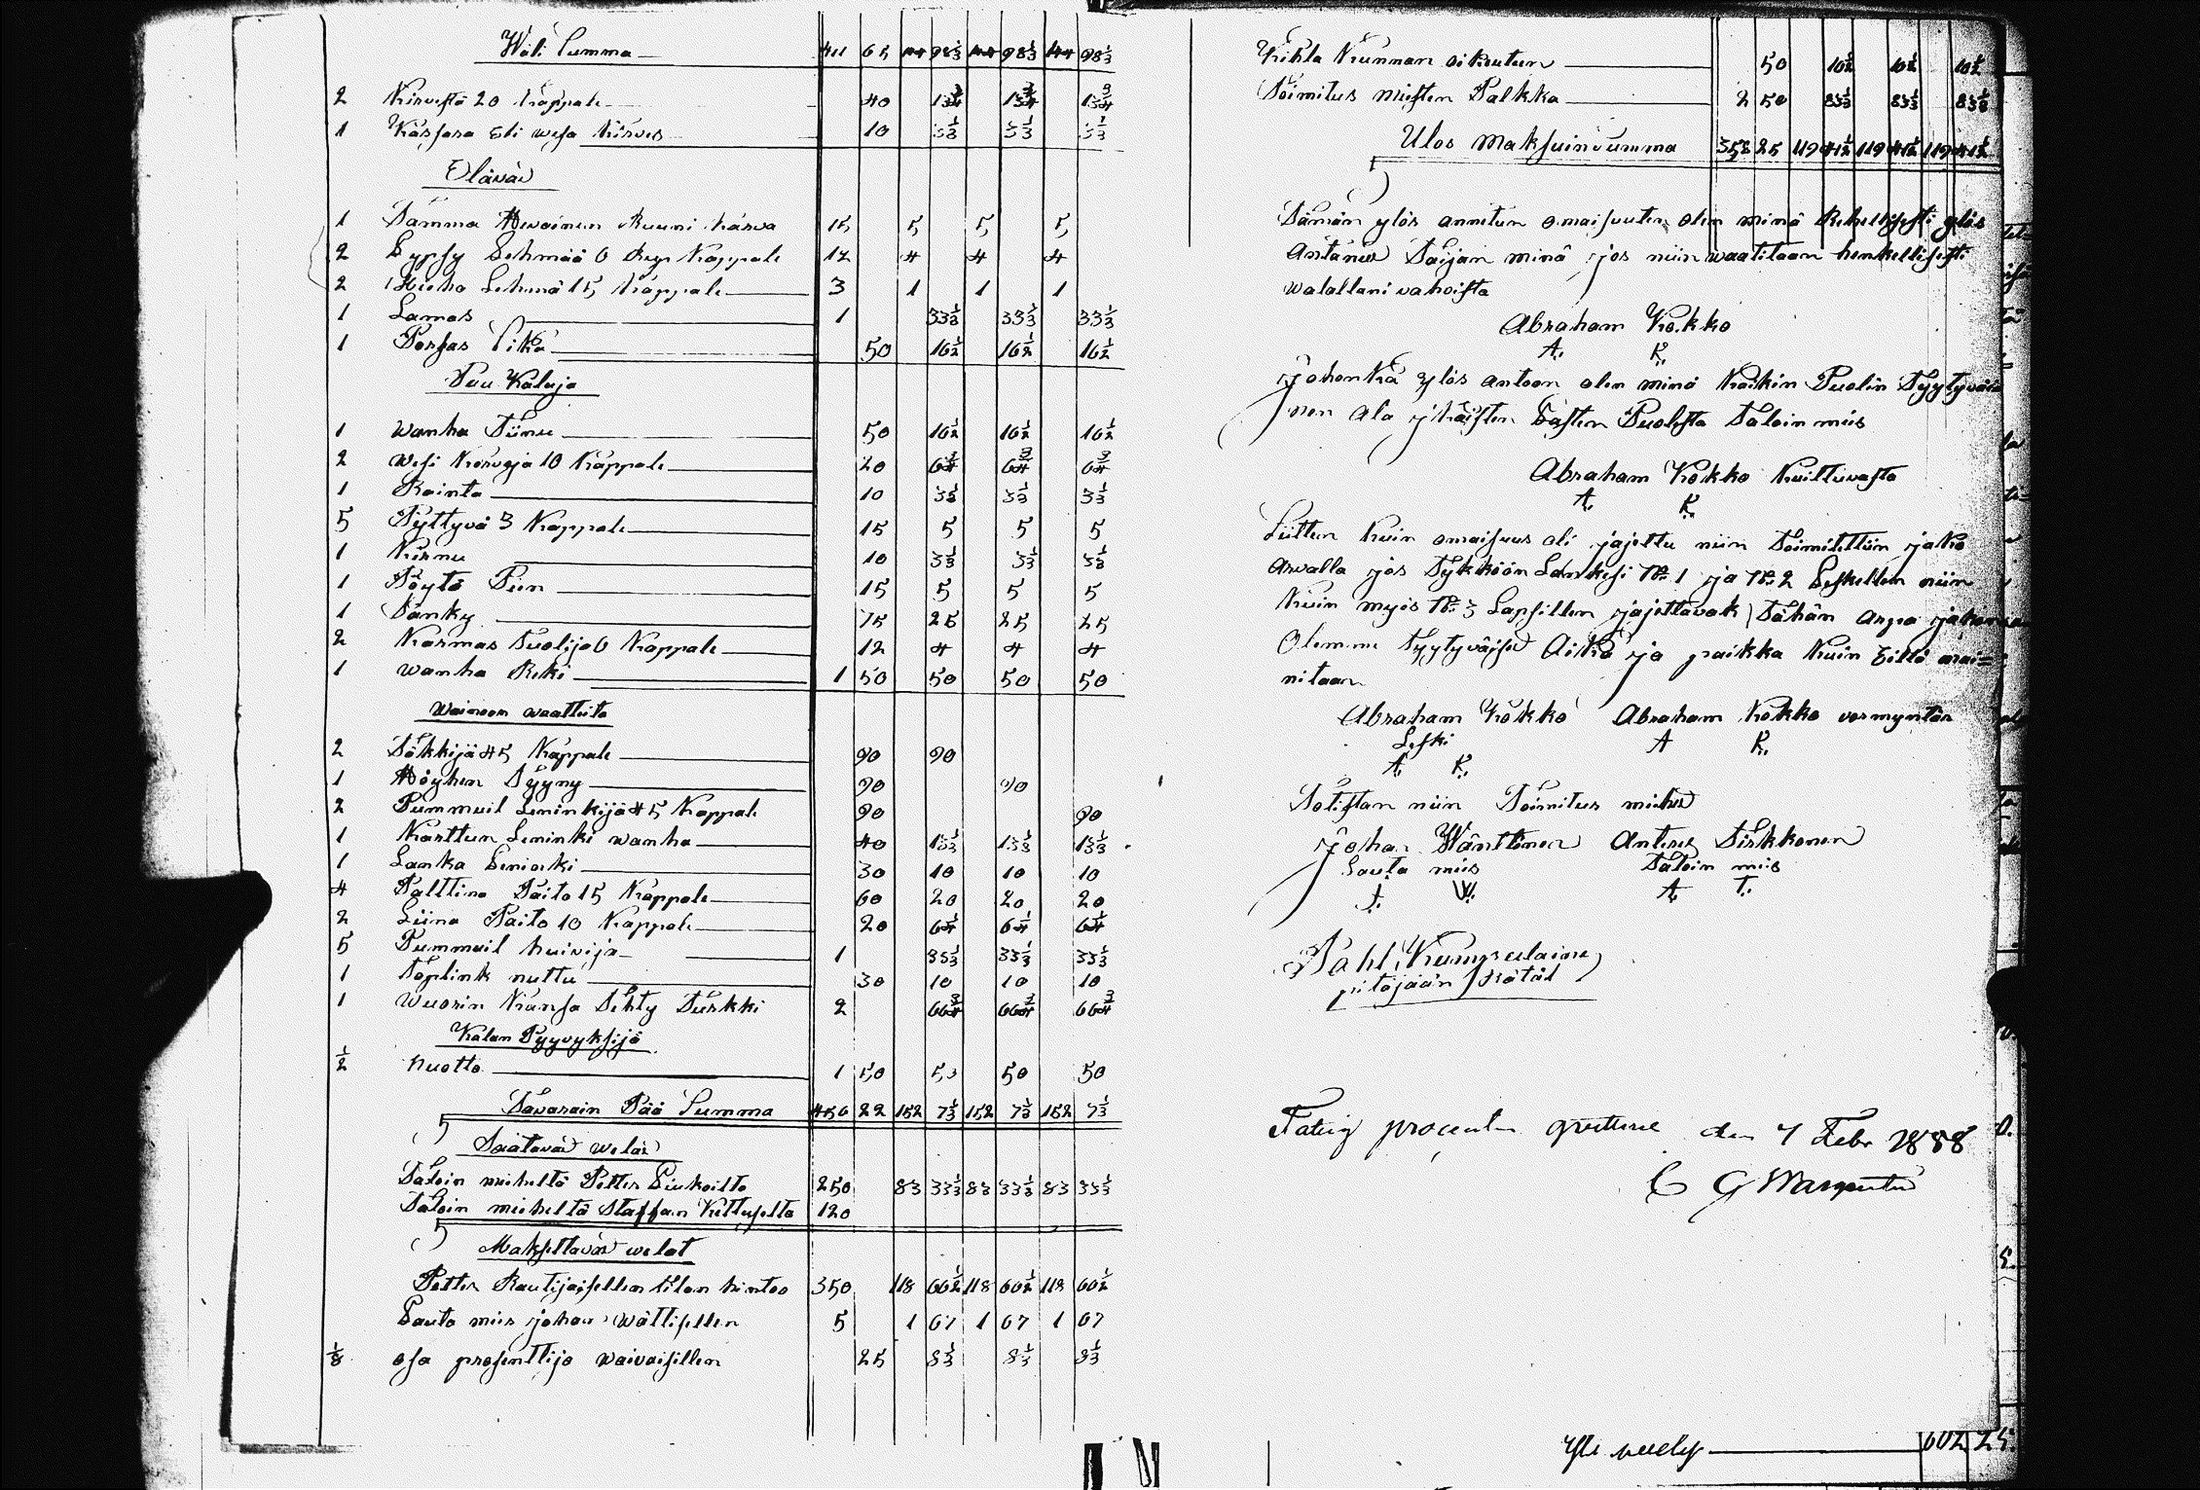 Wäli Summa 411 65 144 98 1/3 144 98 1/3 144 98 1/3
2 Kirvestä 20 Kappale 40 13 3/4 13 3/4 13 3/4
1 Kässara Eli wesa kirves 10 3 1/3 3 1/3 3 1/3
Eläväd
1 Tamma Hevoinen Ruuni karva 15 5 5 5
2 Lypsy Lehmää 6 Rup Kappale 12 4 4 4
2 Hieho Lehmä 15 Kappale 3 1 1 1
1 Lamas 1 33 1/3 33 1/3 33 1/3
1 Porsas Sika 50 16 1/2 16 1/2 16 1/2
Puu Kaluja
1 Wanha Tiinu 50 16 1/2 16 1/2 16 1/2
2 Wesi Korvoja 10 Kappale 20 6 3/4 6 3/4 6 3/4
1 Rainta 10 3 1/3 3 1/3 3 1/3
5 Pyttyvä 3 Kappale 15 5 5 5
1 Kirnu 10 3 1/3 3 1/3 3 1/3
1 Pöytä Pien 15 5 5 5
1 Sänky 75 25 25 25
2 Karmas Tuolija 6 Kappale 12 4 4 4
1 Wanha Reki 1 50 50 50 50
Wainaan waatteita
2 Säkkijä 45 Kappale 90 90
1 Höyhen Tyyny 90 90
2 Pummuil Leninkijä 45 Kappale 90 90
1 Karttun Leninki wanha 40 13 1/3 13 1/3 13 1/3
1 Lanka Leninki 30 10 10 10
4 Palttina Paito 15 Kappale 60 20 20 20
2 Liina Paito 10 Kappale 20 6 1/4 6 1/4 6 1/4
5 Pummuil huivija 1 33 1/3 33 1/3 33 1/3
1 Toplink nuttu 30 10 10 10
1 Wuorin Kansa Tehty Turkki 2 66 3/4 66 3/4 66 3/4
Kalan Pyyvyksijä
1/2 Nuotta 1 50 50 50 50
Tavarain Pää Summa 456 22 152 7 1/3 152 7 1/3 152 7 1/3
Saatavad welad
Taloin mieheltä Petter 250 83 33 1/3 83 33 1/3 83 33 1/3
Taloin mieheltä Staffan 120
Maksettavad welat
Petter Rautijaisellen tilan hintaa 350 118 66 1/2 118 66 1/2 118 66 1/2
Lauta mies Johan Wättisellen 5 1 67 1 67 1 67
1/8 osa prosenttija waivaisillen 25 8 1/3 8 1/3 8 1/3
Kihla Kunnan oikeutun 50 16 1/2 16 1/2 16 1/2
Toimitus miesten Palkka 2 50 83 1/3 83 1/3 83 1/3
Ulos Maksuin Summa 358 25 119 41 1/2 119 41 1/2 119 41 1/2
Tämän ylös annetun omaisuuten olen minä Rehellisesti ylös
Antanut Taijan minä jos niin waatitaan henkellisesti
walallani vahvista
Abraham Kokko
A. K.
Johonka ylös antoon olen minä Kaikin Puolin Tyytyväi
nen ala ikäisten Lasten Puolesta Taloin mies
Abraham Kokko Kuittuvasta
A. K.
Sitten kuin omaisuus oli jajettu niin Toimitettiin jako
Arvalla jos Tykköön Lankesi No 1 ja No 2 Leskellen niin
Kuin myös No 3 Lapsillen jajettavak Tähän Arpa jakon
Olemme Tyytyväised Aika ja paikka Kuin Eillä mai=
nitaan
Abraham Kokko Abraham Kokko vormyntär
Leski A K.
A. K.
Totistan niin Toimitus miehed
Johan Wänttinen Anteres Tirkkonen
Lauta mies Taloin mies
J. W. A. T.
pitäjään
Fatig procenten quitteras den 7 Febr 1888
C G
602 25